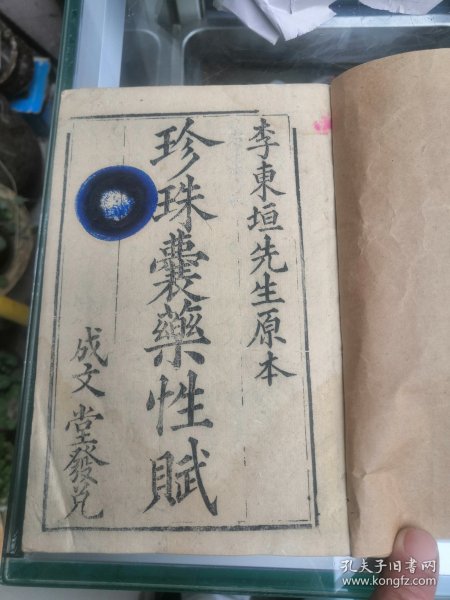 李東垣先生原本
珍珠囊藥性賦
成文堂發兌
孔夫子旧书网
www.kongfz.com